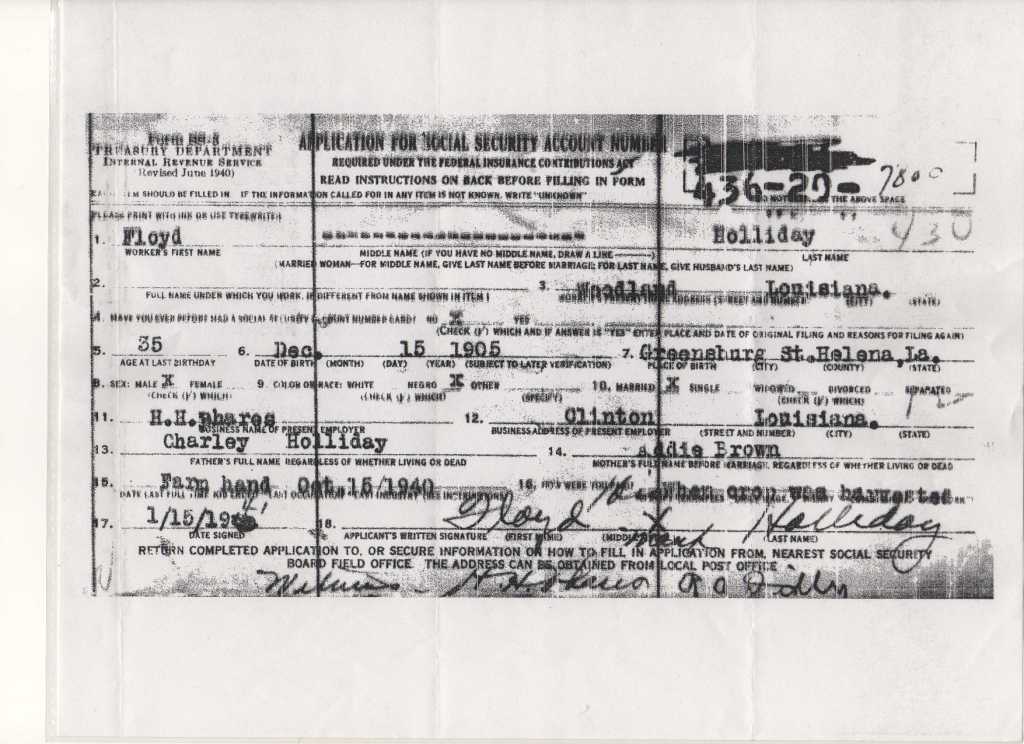 Form SS-5
TREASURY DEPARTMENT
INTERNAL REVENUE SERVICE
(Revised June 1940)
APPLICATION FOR SOCIAL SECURITY ACCOUNT NUMBER
REQUIRED UNDER THE FEDERAL INSURANCE CONTRIBUTIONS ACT
READ INSTRUCTIONS ON BACK BEFORE FILLING IN FORM
436-20-7800
EACH ITEM SHOULD BE FILLED IN IF THE INFORMATION CALLED FOR IN ANY ITEM IS NOT KNOWN, WRITE "UNKNOWN"
THE ABOVE SPACE
PLEASE PRINT WITH INK OR USE TYPEWRITER
430
1. Floyd Holliday
WORKER'S FIRST NAME MIDDLE NAME (IF YOU HAVE NO MIDDLE NAME, DRAW A LINE ———) LAST NAME
(MARRIED WOMAN—FOR MIDDLE NAME, GIVE LAST NAME BEFORE MARRIAGE; FOR LAST NAME, GIVE HUSBAND'S LAST NAME)
2. 3. Woodland Louisiana.
FULL NAME UNDER WHICH YOU WORK, IF DIFFERENT FROM NAME SHOWN IN ITEM 1 (STREET AND NUMBER) (CITY) (STATE)
4. HAVE YOU EVER BEFORE HAD A SOCIAL SECURITY ACCOUNT NUMBER CARD? NO X YES
(CHECK (√) WHICH AND IF ANSWER IS "YES" ENTER PLACE AND DATE OF ORIGINAL FILING AND REASONS FOR FILING AGAIN)
5. 35 6. Dec. 15 1905 7. Greensburg St.Helena,La.
AGE AT LAST BIRTHDAY DATE OF BIRTH (MONTH) (DAY) (YEAR) (SUBJECT TO LATER VERIFICATION) PLACE OF BIRTH (CITY) (COUNTY) (STATE)
8. SEX: MALE X FEMALE 9. COLOR OR RACE: WHITE NEGRO X OTHER 10. MARRIED X SINGLE WIDOWED DIVORCED SEPARATED
(CHECK (√) WHICH) (CHECK (√) WHICH) (SPECIFY) (CHECK (√) WHICH)
11. H.H.phares 12. Clinton Louisiana.
BUSINESS NAME OF PRESENT EMPLOYER BUSINESS ADDRESS OF PRESENT EMPLOYER (STREET AND NUMBER) (CITY) (STATE)
13. Charley Holliday 14. addie Brown
FATHER'S FULL NAME REGARDLESS OF WHETHER LIVING OR DEAD MOTHER'S FULL NAME BEFORE MARRIAGE, REGARDLESS OF WHETHER LIVING OR DEAD
15. Farm hand Oct.15/1940 16. When crop was harvested
17. 1/15/1941 18. Floyd X Holliday
mark
DATE SIGNED APPLICANT'S WRITTEN SIGNATURE (FIRST NAME) (MIDDLE NAME) (LAST NAME)
RETURN COMPLETED APPLICATION TO, OR SECURE INFORMATION ON HOW TO FILL IN APPLICATION FROM, NEAREST SOCIAL SECURITY
BOARD FIELD OFFICE. THE ADDRESS CAN BE OBTAINED FROM LOCAL POST OFFICE
H.H. Phares